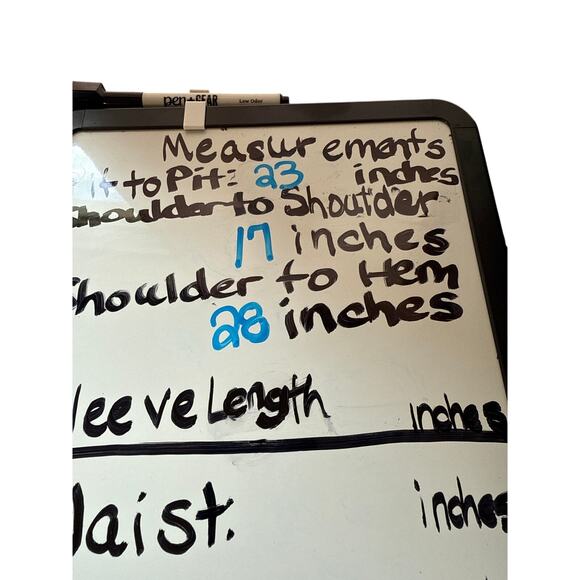 pen+GEAR Low Odor
Measurements
Pit to Pit: 23 inches
Shoulder to Shoulder
17 inches
Shoulder to Hem
28 inches
leeve Length inches
aist: inches